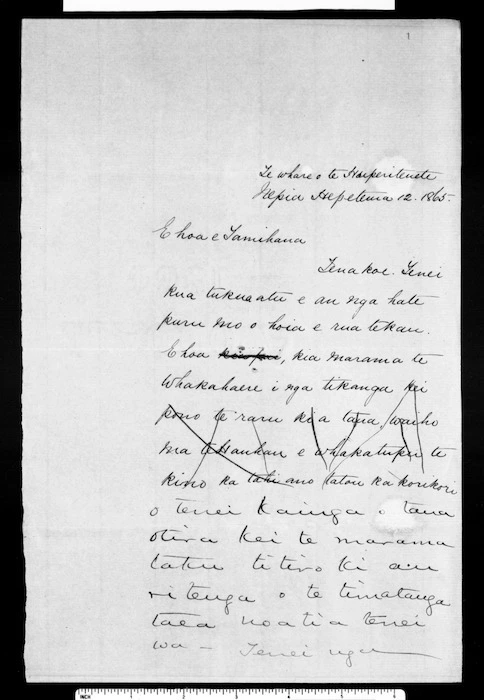 1
Te whare o te Huperitenete
Nepia Hepetema 12. 1865.
E hoa e Tamihana
Tena koe. Tenei
kua tukua atu e au nga hate
puru mo o hoia e rua tekau.
E hoa, kia marama te
whakahaere i nga tikanga kei
pono te raru ki a tana, waiho
ma te Hauhau e whakatupu te
kino ka tahi ano tatou ka korikori
o tenei kainga o tana
otira kei te marama
taku titiro ki au
ritenga o te timatanga
taea noatia tenei
wa — Tenei nga
INCH 1 2 3 4 5 6